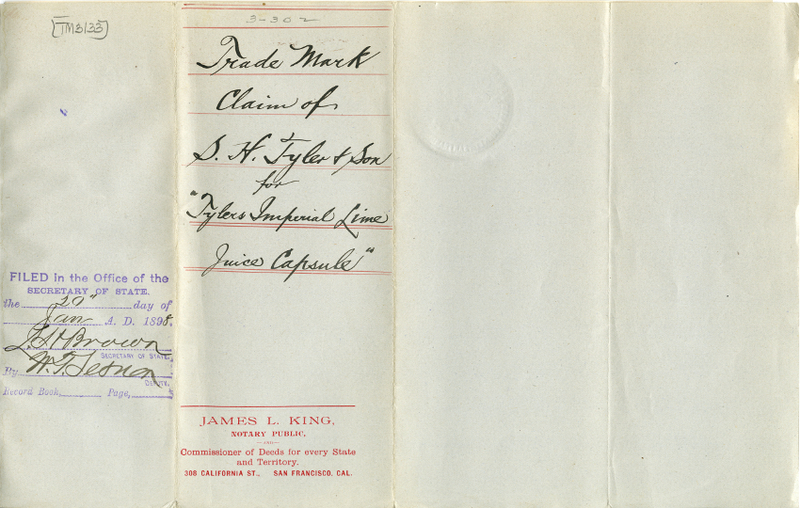 [TM3133]
3-302
Trade Mark
Claim of
S. H. Tyler & Son
for
"Tylers Imperial Lime
Juice Capsule"
FILED In the Office of the
SECRETARY OF STATE.
the 20" day of
Jan A. D. 1898.
L. H. Brown
SECRETARY OF STATE
By W. T. Sesnon
DEPUTY.
Record Book, Page,
JAMES L. KING,
NOTARY PUBLIC,
AND
Commissioner of Deeds for every State
and Territory.
308 CALIFORNIA ST., SAN FRANCISCO, CAL.